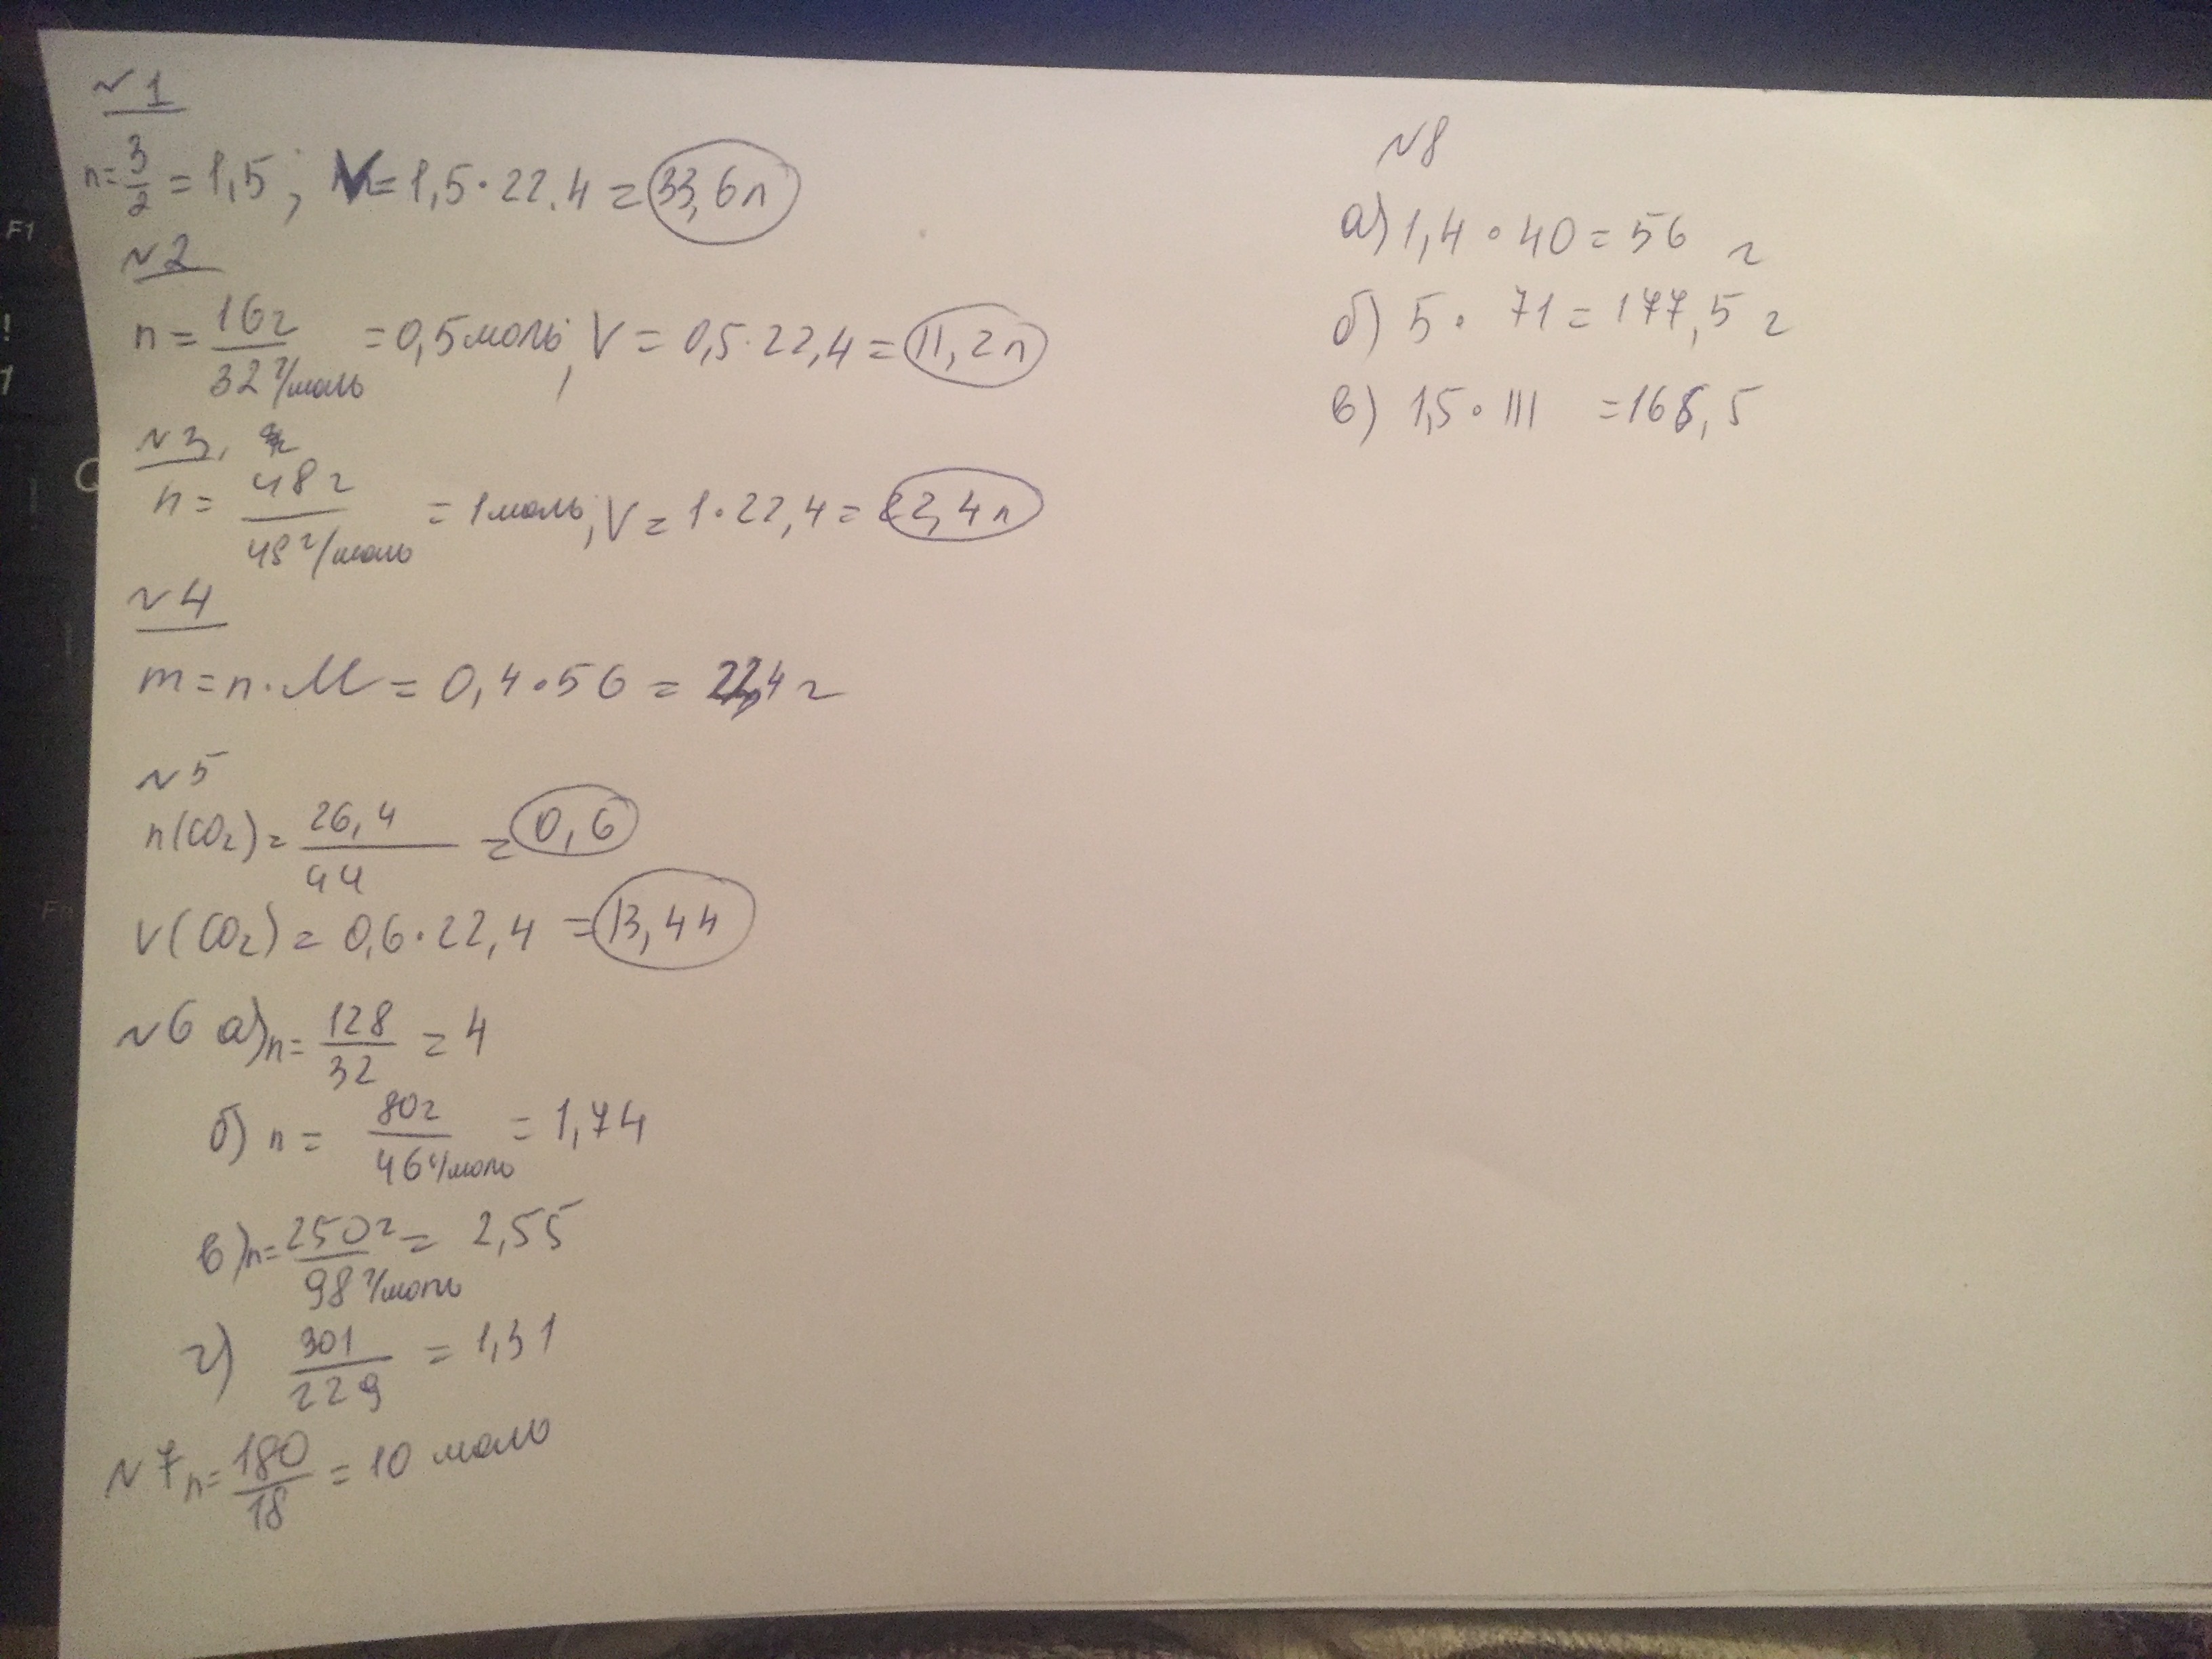 №1
n=3/2=1,5; V=1,5·22,4=33,6л
№2
n=16г/32г/моль=0,5моль; V=0,5·22,4=11,2л
№3,
n=48г/48г/моль=1моль; V=1·22,4=22,4л
№4
m=n·M=0,4·56=22,4г
№5
n(CO2)=26,4/44=0,6
V(CO2)=0,6·22,4=13,44
№6 а)n=128/32=4
б) n=80г/46г/моль=1,74
в)n=250г/98г/моль=2,55
г) 301/229=1,31
№7 n=180/18=10 моль
№8
а)1,4·40=56 г
б) 5·71=177,5 г
в) 1,5·111=166,5
F1
!
1
Fn